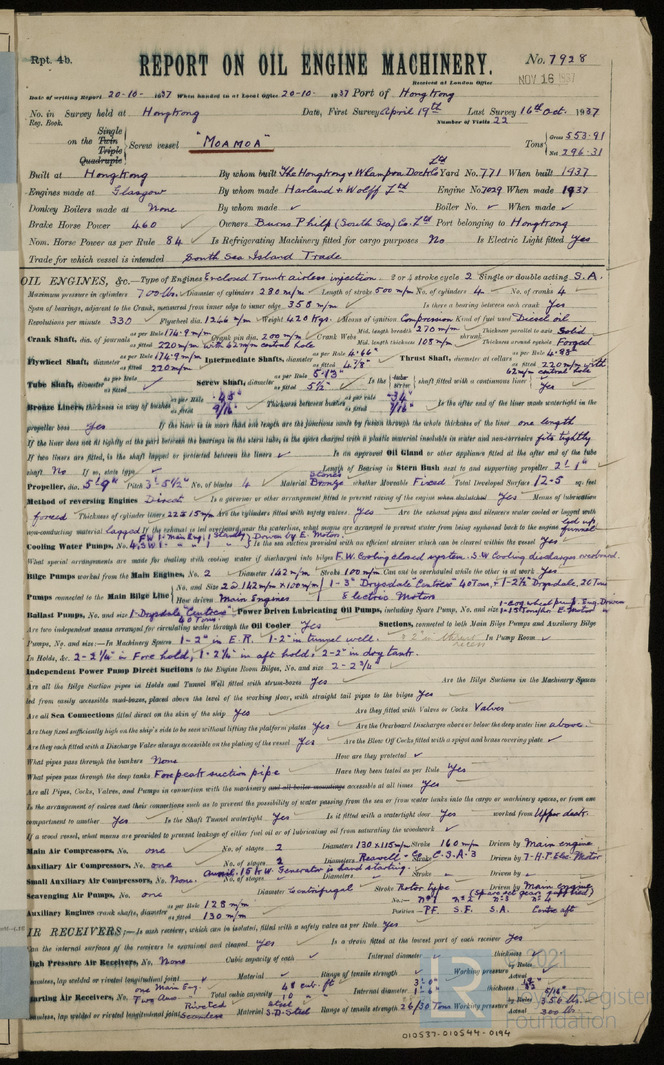 Rpt. 4b.
REPORT ON OIL ENGINE MACHINERY.
No. 7928
Received at London Office NOV 16 1937
Date of writing Report 20-10- 1937 When handed in at Local Office 20-10- 1937 Port of Hongkong
No. in Survey held at Hongkong Date, First Survey April 19th Last Survey 16th Oct. 1937
Reg. Book. Number of Visits 22
on the Single Twin Triple Quadruple Screw vessel "MOAMOA" Tons Gross 553.91 Net 296.31
Built at Hongkong By whom built The Hongkong & Whampoa Dock Co Ltd Yard No. 771 When built 1937
Engines made at Glasgow By whom made Harland & Wolff Ltd Engine No. 7029 When made 1937
Donkey Boilers made at None By whom made ✓ Boiler No. ✓ When made ✓
Brake Horse Power 460 Owners Burns Philp (South Sea) Co. Ltd Port belonging to Hongkong
Nom. Horse Power as per Rule 84 Is Refrigerating Machinery fitted for cargo purposes No Is Electric Light fitted Yes
Trade for which vessel is intended South Sea Island Trade
OIL ENGINES, &c.—Type of Engines Enclosed Trunk airless injection 2 or 4 stroke cycle 2 Single or double acting S.A.
Maximum pressure in cylinders 700 lbs. Diameter of cylinders 280 m/m Length of stroke 500 m/m No. of cylinders 4 No. of cranks 4
Span of bearings, adjacent to the Crank, measured from inner edge to inner edge 358 m/m Is there a bearing between each crank Yes
Revolutions per minute 330 Flywheel dia. 1246 m/m Weight 420 Kgs. Means of ignition Compression Kind of fuel used Diesel oil
Crank Shaft, dia. of journals as per Rule 174.9 m/m as fitted 220 m/m with 62 m/m central hole Crank pin dia. 200 m/m Crank Webs Mid. length breadth 270 m/m Mid. length thickness 108 m/m Thickness parallel to axis Solid Thickness around eyehole Forged
Flywheel Shaft, diameter as per Rule 174.9 m/m as fitted 220 m/m Intermediate Shafts, diameter as per Rule 4.66" as fitted 4 7/8" Thrust Shaft, diameter at collars as per Rule 4.98" as fitted 220 m/m with 62 m/m central hole
Tube Shaft, diameter as per Rule as fitted ✓ Screw Shaft, diameter as per Rule 5.13" as fitted 5 1/2" Is the tube screw shaft fitted with a continuous liner Yes
Bronze Liners, thickness in way of bushes as per Rule .45" as fitted 9/16" Thickness between bushes as per Rule .34" as fitted 7/16" Is the after end of the liner made watertight in the
propeller boss Yes If the liner is in more than one length are the junctions made by fusion through the whole thickness of the liner one length
If the liner does not fit tightly at the part between the bearings in the stern tube, is the space charged with a plastic material insoluble in water and non-corrosive fits tightly
If two liners are fitted, is the shaft lapped or protected between the liners ✓ Is an approved Oil Gland or other appliance fitted at the after end of the tube
shaft No If so, state type ✓ Length of Bearing in Stern Bush next to and supporting propeller 2' 1"
Propeller, dia. 5' 9" Pitch 3' 5 1/2" No. of blades 4 Material Bronze whether Moveable Fixed Total Developed Surface 12.5 sq. feet
Method of reversing Engines Direct Is a governor or other arrangement fitted to prevent racing of the engine when declutched Yes Means of lubrication
forced Thickness of cylinder liners Are the cylinders fitted with safety valves Yes Are the exhaust pipes and silencers water cooled or lagged with
non-conducting material lagged If the exhaust is led overboard near the waterline, what means are arranged to prevent water being syphoned back to the engine led up funnel
Cooling Water Pumps, No. Driven by E. Motor. Is the sea suction provided with an efficient strainer which can be cleared within the vessel Yes
What special arrangements are made for dealing with cooling water if discharged into bilges F.W. Cooling closed system. S.W. Cooling discharges overboard.
Bilge Pumps worked from the Main Engines, No. 2 Diameter 142 m/m Stroke 100 m/m Can one be overhauled while the other is at work Yes
Pumps connected to the Main Bilge Line No. and Size 2 @ 142 m/m x 100 m/m 1-3" Drysdale "Centrex" 40 Tons. + 1-2 1/2" Drysdale, 20 Tons
How driven Main Engines Electric Motors
Ballast Pumps, No. and size 1 Drysdale "Centrex" 40 Tons Power Driven Lubricating Oil Pumps, including Spare Pump, No. and size
Are two independent means arranged for circulating water through the Oil Cooler Yes Suctions, connected to both Main Bilge Pumps and Auxiliary Bilge
Pumps, No. and size:—In Machinery Spaces 1-2" in E.R. 1-2" in tunnel well. In Pump Room ✓
In Holds, &c. 2-2 1/4" in Fore hold, 1-2 1/4" in aft hold. 2-2" in dry tank.
Independent Power Pump Direct Suctions to the Engine Room Bilges, No. and size 2-2 3/4"
Are all the Bilge Suction pipes in Holds and Tunnel Well fitted with strum-boxes Yes Are the Bilge Suctions in the Machinery Spaces
led from easily accessible mud-boxes, placed above the level of the working floor, with straight tail pipes to the bilges Yes
Are all Sea Connections fitted direct on the skin of the ship Yes Are they fitted with Valves or Cocks Valves
Are they fixed sufficiently high on the ship's side to be seen without lifting the platform plates Yes Are the Overboard Discharges above or below the deep water line above.
Are they each fitted with a Discharge Valve always accessible on the plating of the vessel Yes Are the Blow Off Cocks fitted with a spigot and brass covering plate ✓
What pipes pass through the bunkers None How are they protected ✓
What pipes pass through the deep tanks Forepeak suction pipe Have they been tested as per Rule Yes
Are all Pipes, Cocks, Valves, and Pumps in connection with the machinery and all boiler mountings accessible at all times Yes
Is the arrangement of valves and their connections such as to prevent the possibility of water passing from the sea or from water tanks into the cargo or machinery spaces, or from one
compartment to another Yes Is the Shaft Tunnel watertight Yes Is it fitted with a watertight door Yes worked from Upper deck.
If a wood vessel, what means are provided to prevent leakage of either fuel oil or of lubricating oil from saturating the woodwork ✓
Main Air Compressors, No. one No. of stages 2 Diameters 130 x 115 m/m Stroke 160 m/m Driven by Main engine
Auxiliary Air Compressors, No. one No. of stages 2 Diameters Reavell Stroke C.S.A.3 Driven by 7-H.P. Elec. Motor
Small Auxiliary Air Compressors, No. None. No. of stages Diameters Stroke Driven by
Auxil. 15 K.W. Generator is hand starting.
Scavenging Air Pumps, No. one Diameter Centrifugal Stroke Rotor type Driven by Main engine
Auxiliary Engines crank shafts, diameter as per Rule 128 m/m as fitted 130 m/m No. No 1 No 2 No 3 No 4 Position P.F. S.F. S.A. Centre aft
IR RECEIVERS:—Is each receiver, which can be isolated, fitted with a safety valve as per Rule Yes
Can the internal surfaces of the receivers be examined and cleaned Yes Is a drain fitted at the lowest part of each receiver Yes
High Pressure Air Receivers, No. None Cubic capacity of each ✓ Internal diameter ✓ thickness ✓
Seamless, lap welded or riveted longitudinal joint ✓ Material ✓ Range of tensile strength ✓ Working pressure by Rules Actual
Starting Air Receivers, No. one Main Eng. Two Aux Total cubic capacity 48 cub. ft 10 Internal diameter thickness
Seamless, lap welded or riveted longitudinal joint Riveted Seamless Material Steel S.D. Steel Range of tensile strength 26/30 Tons Working pressure by Rules 356 lb. Actual 300 lb.
© 2021
Lloyd's Register
Foundation
010537-010544-0194